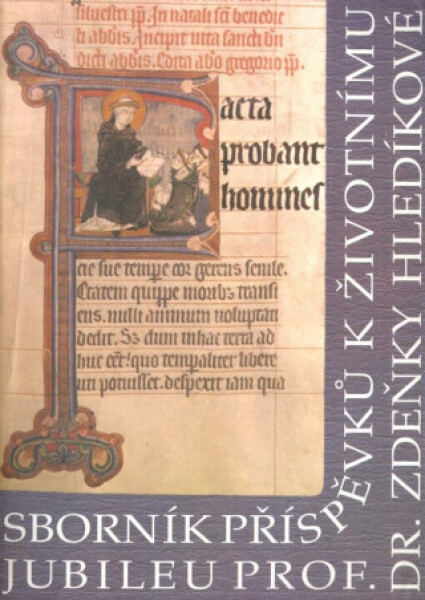 siluestri pp. In natali sci benedic
ti abbis. Incipit uita sancti bn
dicti abbis. Edita abo gregorio pp.
Facta
probant
homines
cie sue tempe cor gerens senile.
Etatem quippe moribz transi
ens. nulli animum uoluptati
dedit. Sz dum in hac terra ad
huc eet! quo temporaliter libere
uti potuisset. despexit iam qua
SBORNÍK PŘÍSPĚVKŮ K ŽIVOTNÍMU
JUBILEU PROF. DR. ZDEŇKY HLEDÍKOVÉ